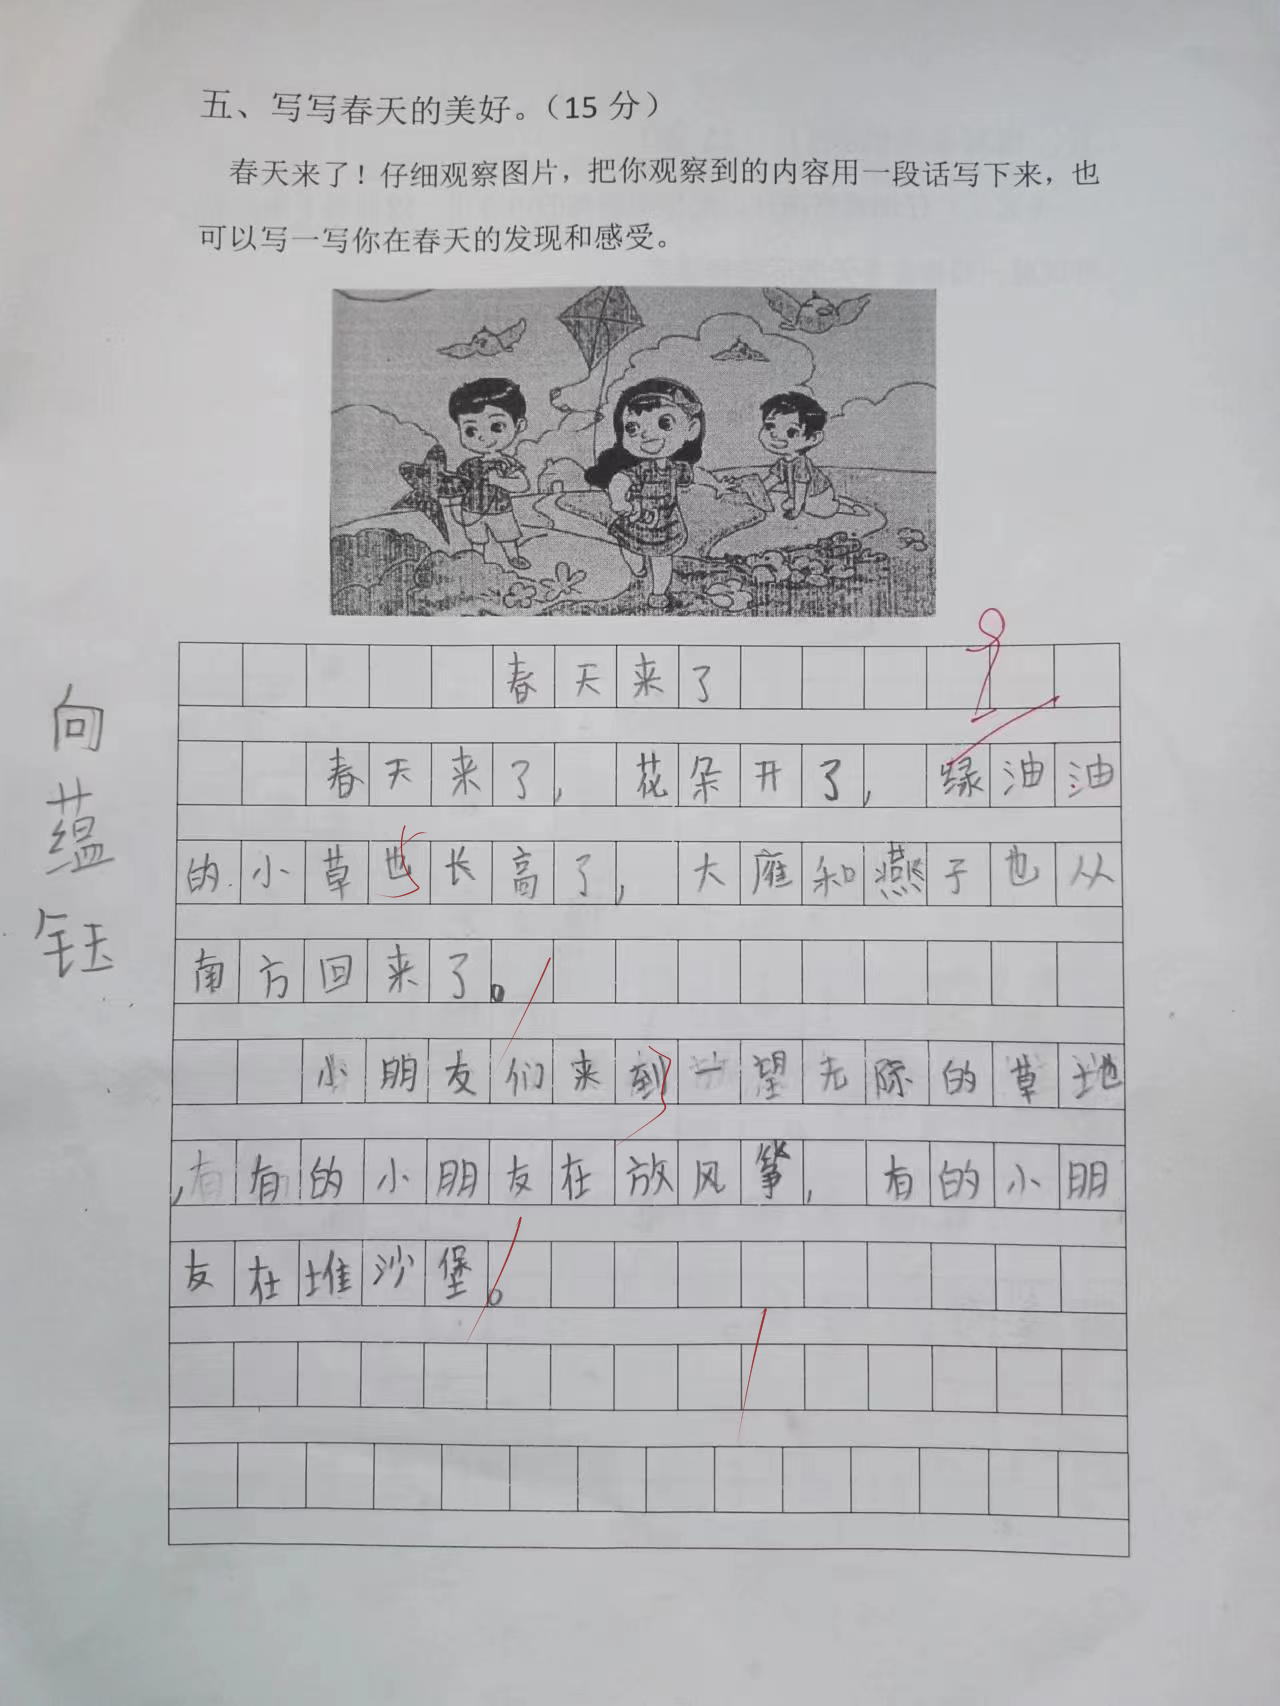 五、写写春天的美好。（15 分）
春天来了！仔细观察图片，把你观察到的内容用一段话写下来，也
可以写一写你在春天的发现和感受。
春天来了
春天来了，花朵开了，绿油油
的小草也长高了，大雁和燕子也从
南方回来了。
小朋友们来到一望无际的草地
，有的小朋友在放风筝，有的小朋
友在堆沙堡。
向蕴钰